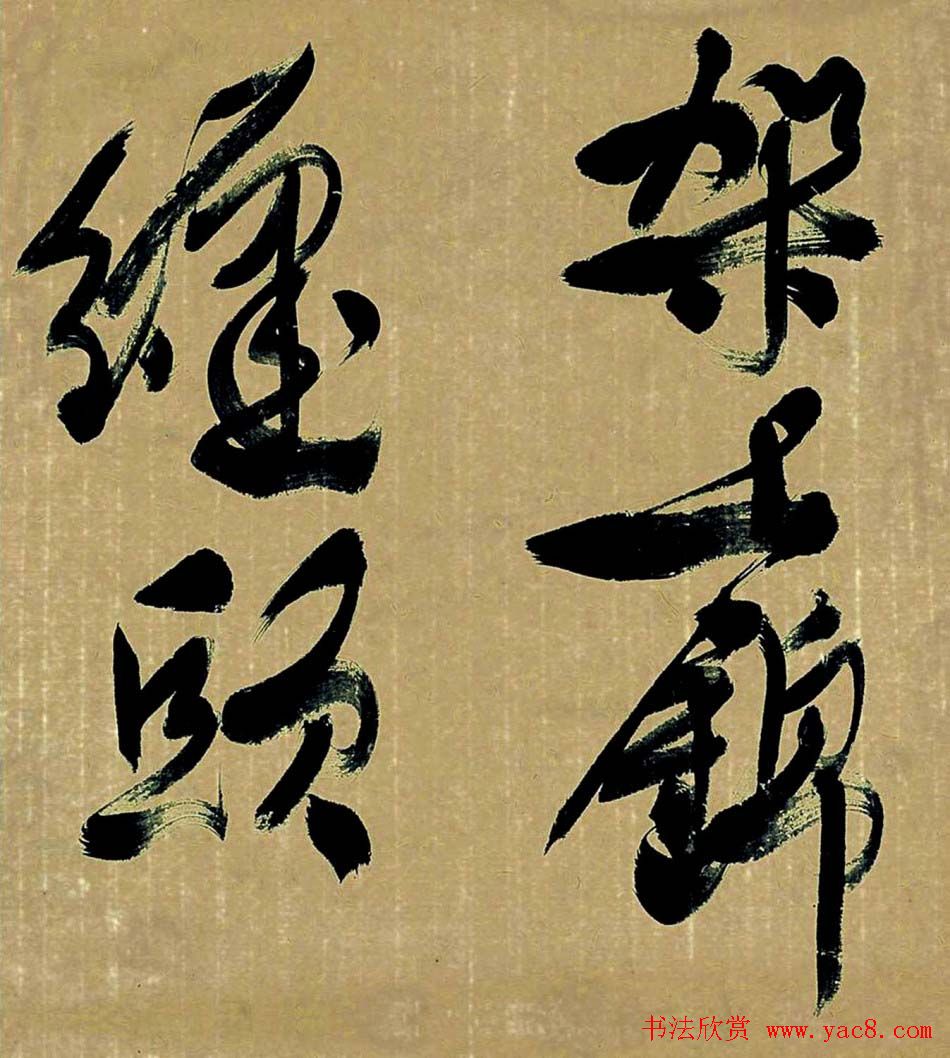 架上錦
纏頭
书法欣赏 www.yac8.com